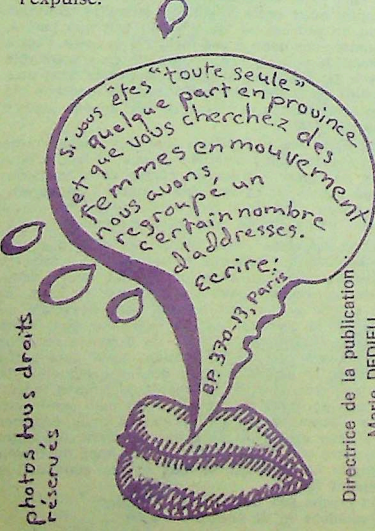 l'expulse.
Si vous êtes "toute seule"
quelque part en province
et que vous cherchez des
femmes en mouvement
nous avons,
regroupé un
certain nombre
d'addresses.
Ecrire:
B.P. 370-13, Paris
photos tous droits
réservés
Directrice de la publication
Marie DEDIEU